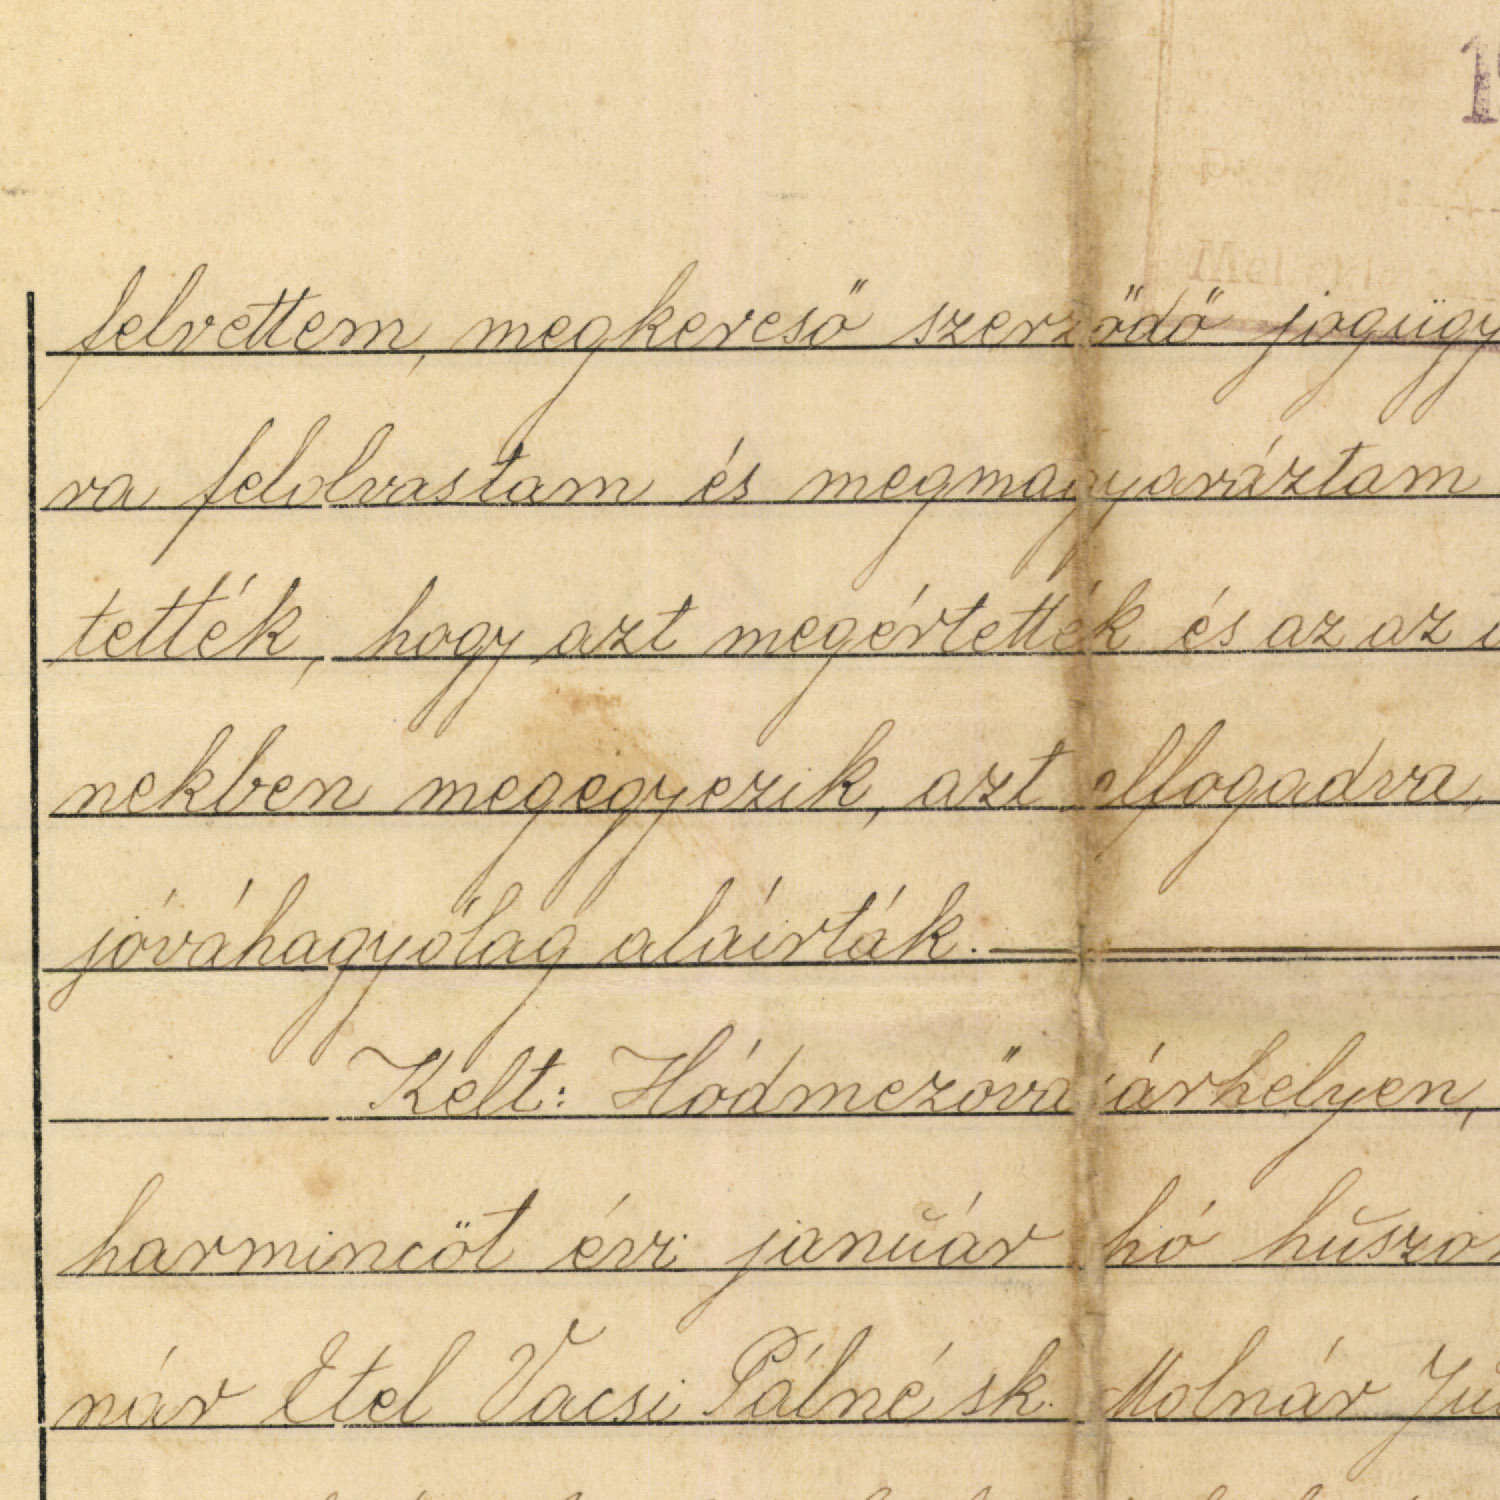 felvettem, megkereső szerződő jogügy
ra felolvastam és megmagyaráztam
tették, hogy azt megértették és az az
nekben megegyezik, azt elfogadva,
jóváhagyólag aláírták.
Kelt: Hódmezővásárhelyen,
harmincöt évi január hó húszon
nár Etel Vacsi Pálné sk. Molnár